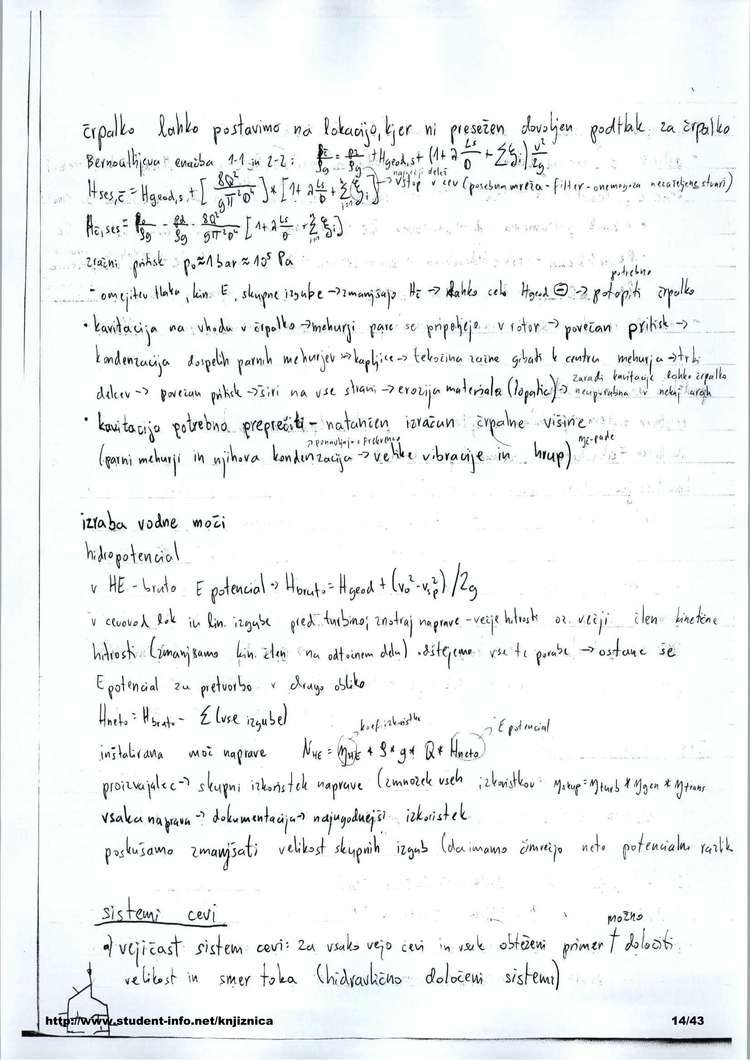 črpalko lahko postavimo na lokacijo, kjer ni presežen dovoljen podtlak za črpalko
Bernoullijeva enačba 1-1 in 2-2: pč/ρg = p2/ρg + Hgeod,s + (1+λ Ls/D + Σξi) v²/2g
največji delež
Hses,č = Hgeod,s + [8Q²/gπ²D⁴] * [1+λ Ls/D + Σξi] → vstop v cev (posebna mreža - filter - onemogoča nezaželjene stvari)
Hč,ses = p0/ρg - p2/ρg - 8Q²/gπ²D⁴ [1+λ Ls/D + Σξi]
zračni pritisk p0≈1bar≈10⁵ Pa
potrebno
- omejitev tlaka, kin. E, skupne izgube → zmanjšajo Hč → lahko celo Hgeod ⊖ → potopiti črpalko
• kavitacija na vhodu v črpalko → mehurji pare se pripeljejo v rotor → povečan pritisk →
kondenzacija dospelih parnih mehurjev → kapljice → tekočina začne gibati k centru mehurja → trki
delcev → povečan pritisk → širi na vse strani → erozija materiala (lopatic) → zaradi kavitacije lahko črpalka neuporabna v nekaj urah
• kavitacijo potrebno preprečiti - natančen izračun črpalne višine
→ ponavljajo s frekvenco
(parni mehurji in njihova kondenzacija → velike vibracije in hrup)
izraba vodne moči
hidropotencial
v HE - bruto E potencial → Hbruto = Hgeod + (v0²-vsp²)/2g
v cevovod lok in lin. izgube pred turbino; znotraj naprave - večje hitrosti oz. večji člen kinetične
hitrosti (zmanjšamo kin. člen na odtočnem delu) odštejemo vse te porabe → ostane še
E potencial za pretvorbo v drugo obliko
Hneto = Hbruto - Σ (vse izgube)
koef. izkoristka
E potencial
inštalirana moč naprave NHE = ηHE * ρ * g * Q * Hneto
proizvajalec → skupni izkoristek naprave (zmnožek vseh izkoristkov: ηskup = ηturb * ηgen * ηtrans
vsaka naprava → dokumentacija → najugodnejši izkoristek
poskušamo zmanjšati velikost skupnih izgub (da imamo čimvečjo neto potencialno razlik
sistemi cevi
možno
a) vejičast sistem cevi: za vsako vejo cevi in vsak obteženi primer ↑ določiti
velikost in smer toka (hidravlično določeni sistemi)
http://www.student-info.net/knjiznica
14/43